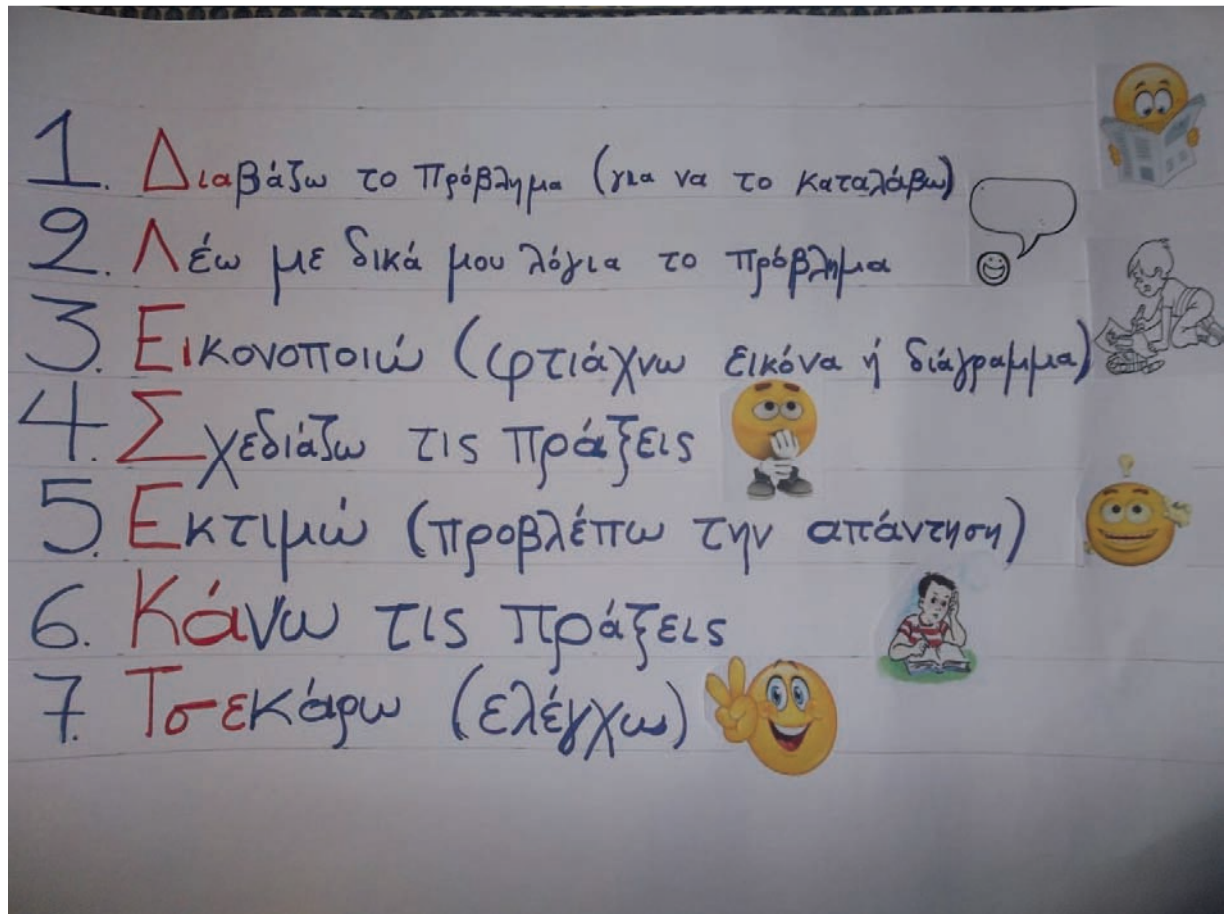 1. Διαβάζω το πρόβλημα (για να το καταλάβω)
2. Λέω με δικά μου λόγια το πρόβλημα
3. Εικονοποιώ (φτιάχνω εικόνα ή διάγραμμα)
4. Σχεδιάζω τις πράξεις
5. Εκτιμώ (προβλέπω την απάντηση)
6. Κάνω τις πράξεις
7. Τσεκάρω (ελέγχω)